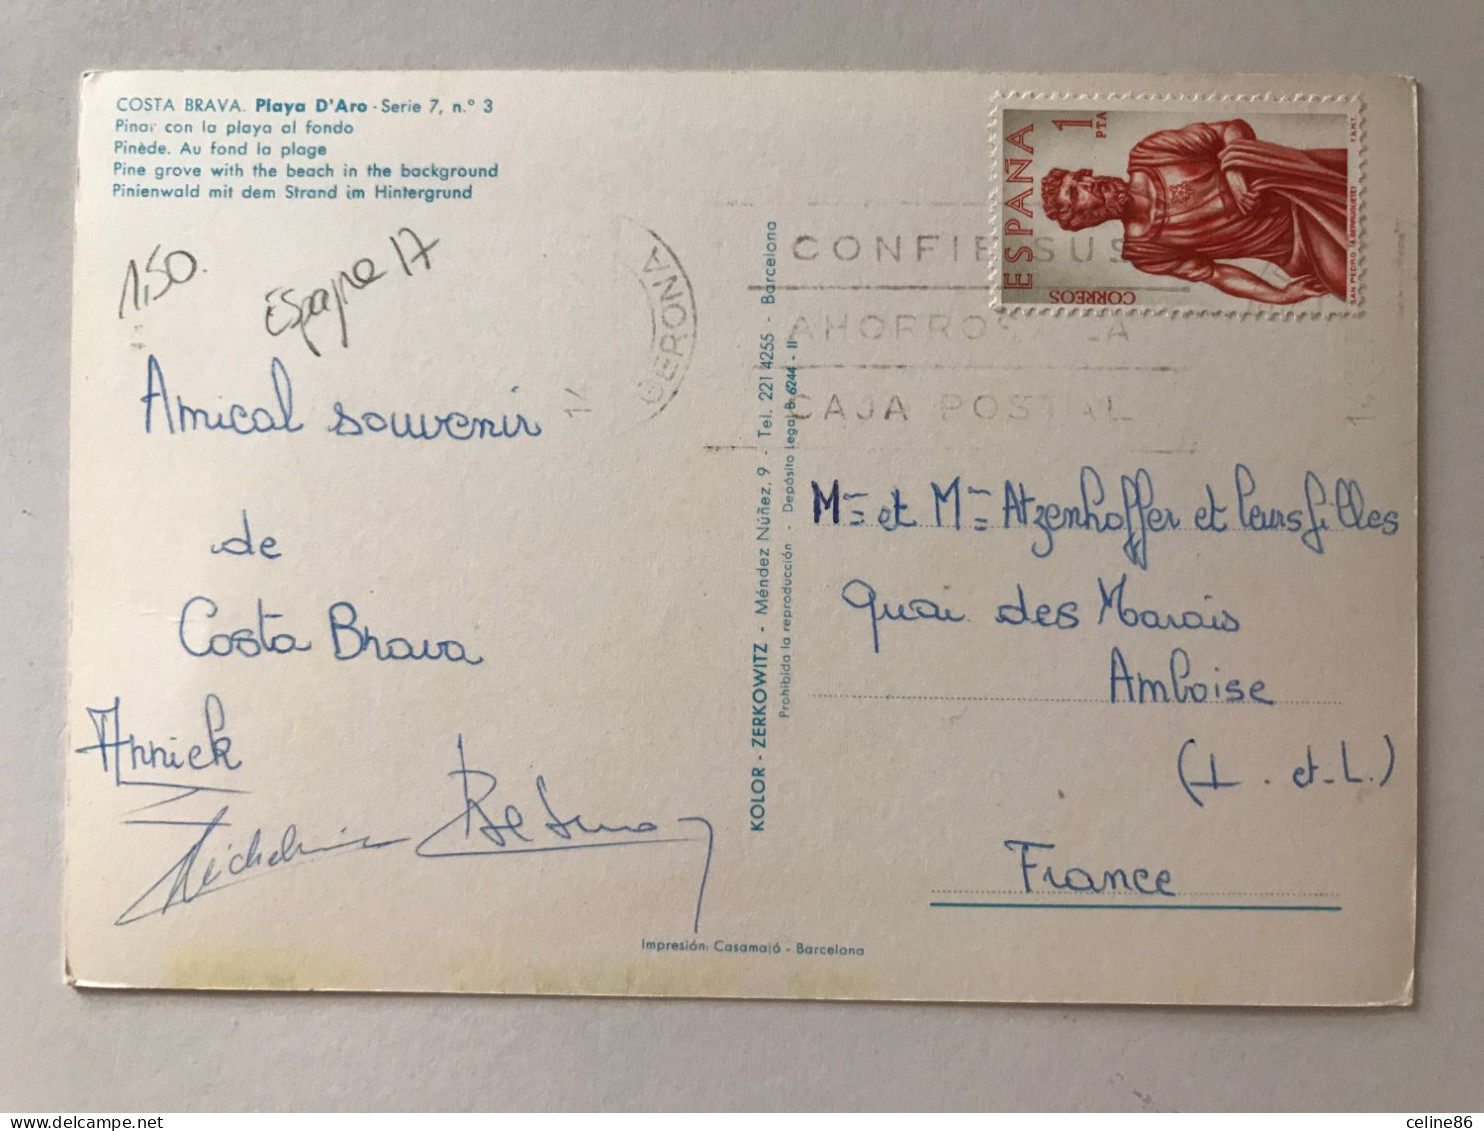 COSTA BRAVA. Playa D'Aro - Serie 7, n.º 3
Pinar con la playa al fondo
Pinède. Au fond la plage
Pine grove with the beach in the background
Pinienwald mit dem Strand im Hintergrund
1,50.
Espagne 17
Amical souvenir
de
Costa Brava
Annick
Micheline
KOLOR - ZERKOWITZ - Méndez Núñez, 9 - Tel. 221 4255 - Barcelona
Prohibida la reproducción - Depósito Legal B. 6244 - II
GERONA
14
CONFIE SUS
AHORROS A LA
CAJA POSTAL
14
ESPAÑA
1 PTA
CORREOS
SAN PEDRO (A. BERRUGUETE)
F.N.M.T.
Mr et Mme Atzenhoffer et leurs filles
Quai des Marais
Amboise
(I. et.L.)
France
Impresión: Casamajó - Barcelona
celine86